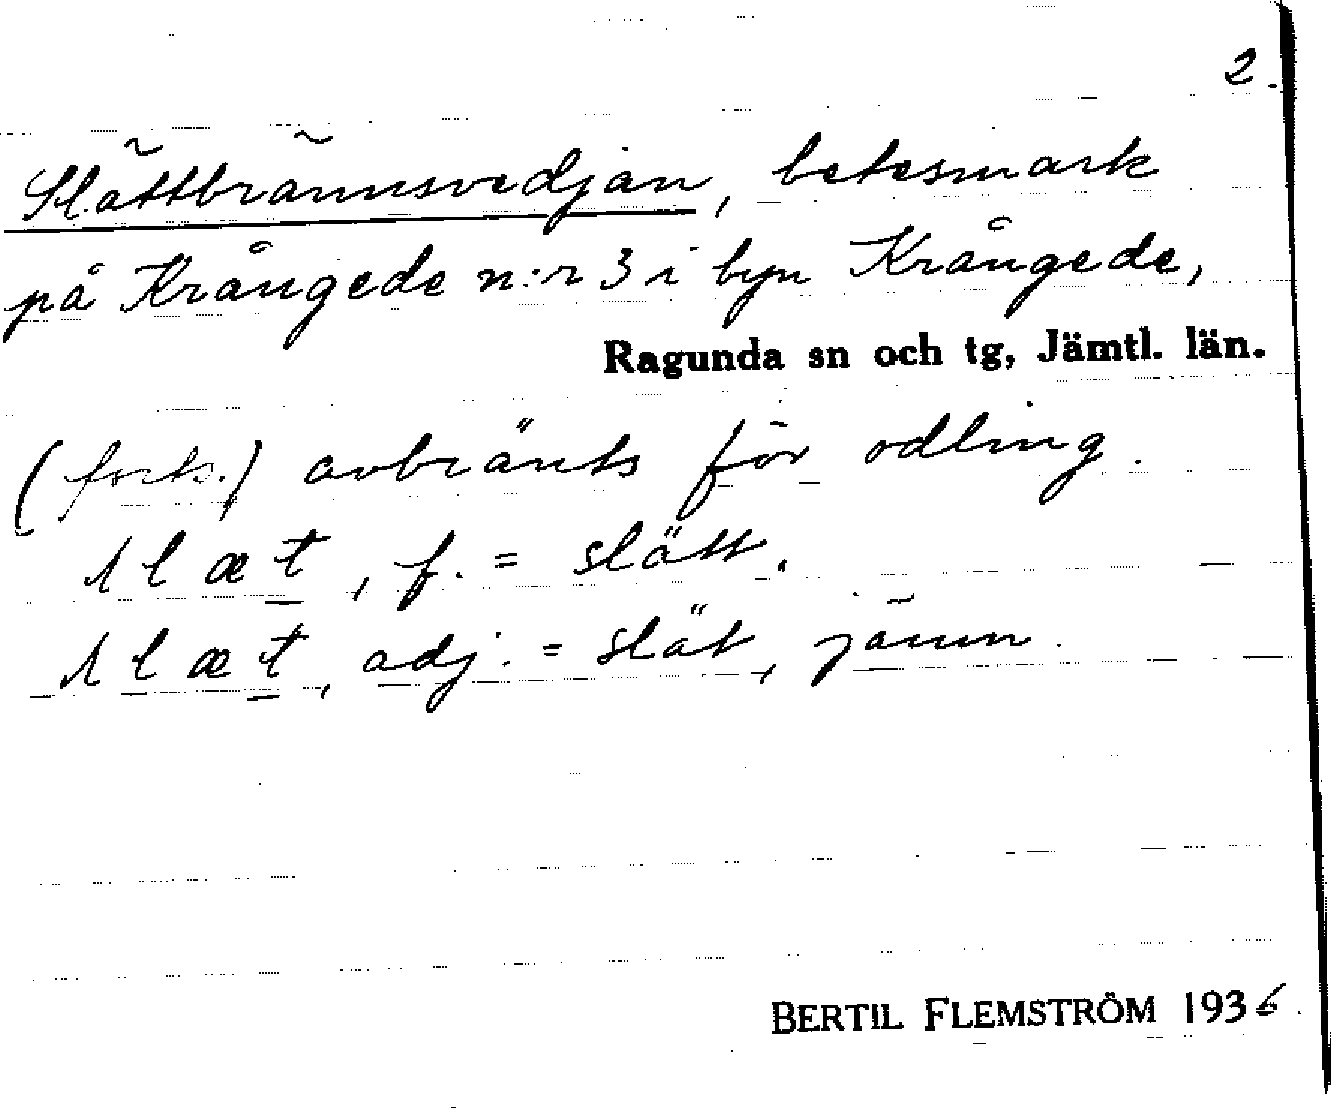 2.
Slättbrännsvedjan, betesmark
på Krångede n:r 3 i byn Krångede,
Ragunda sn och tg, Jämtl. län.
(forts.) avbränts för odling.
slæt, f. = slått.
slæt, adj. = slät, jämn.
BERTIL FLEMSTRÖM 1936